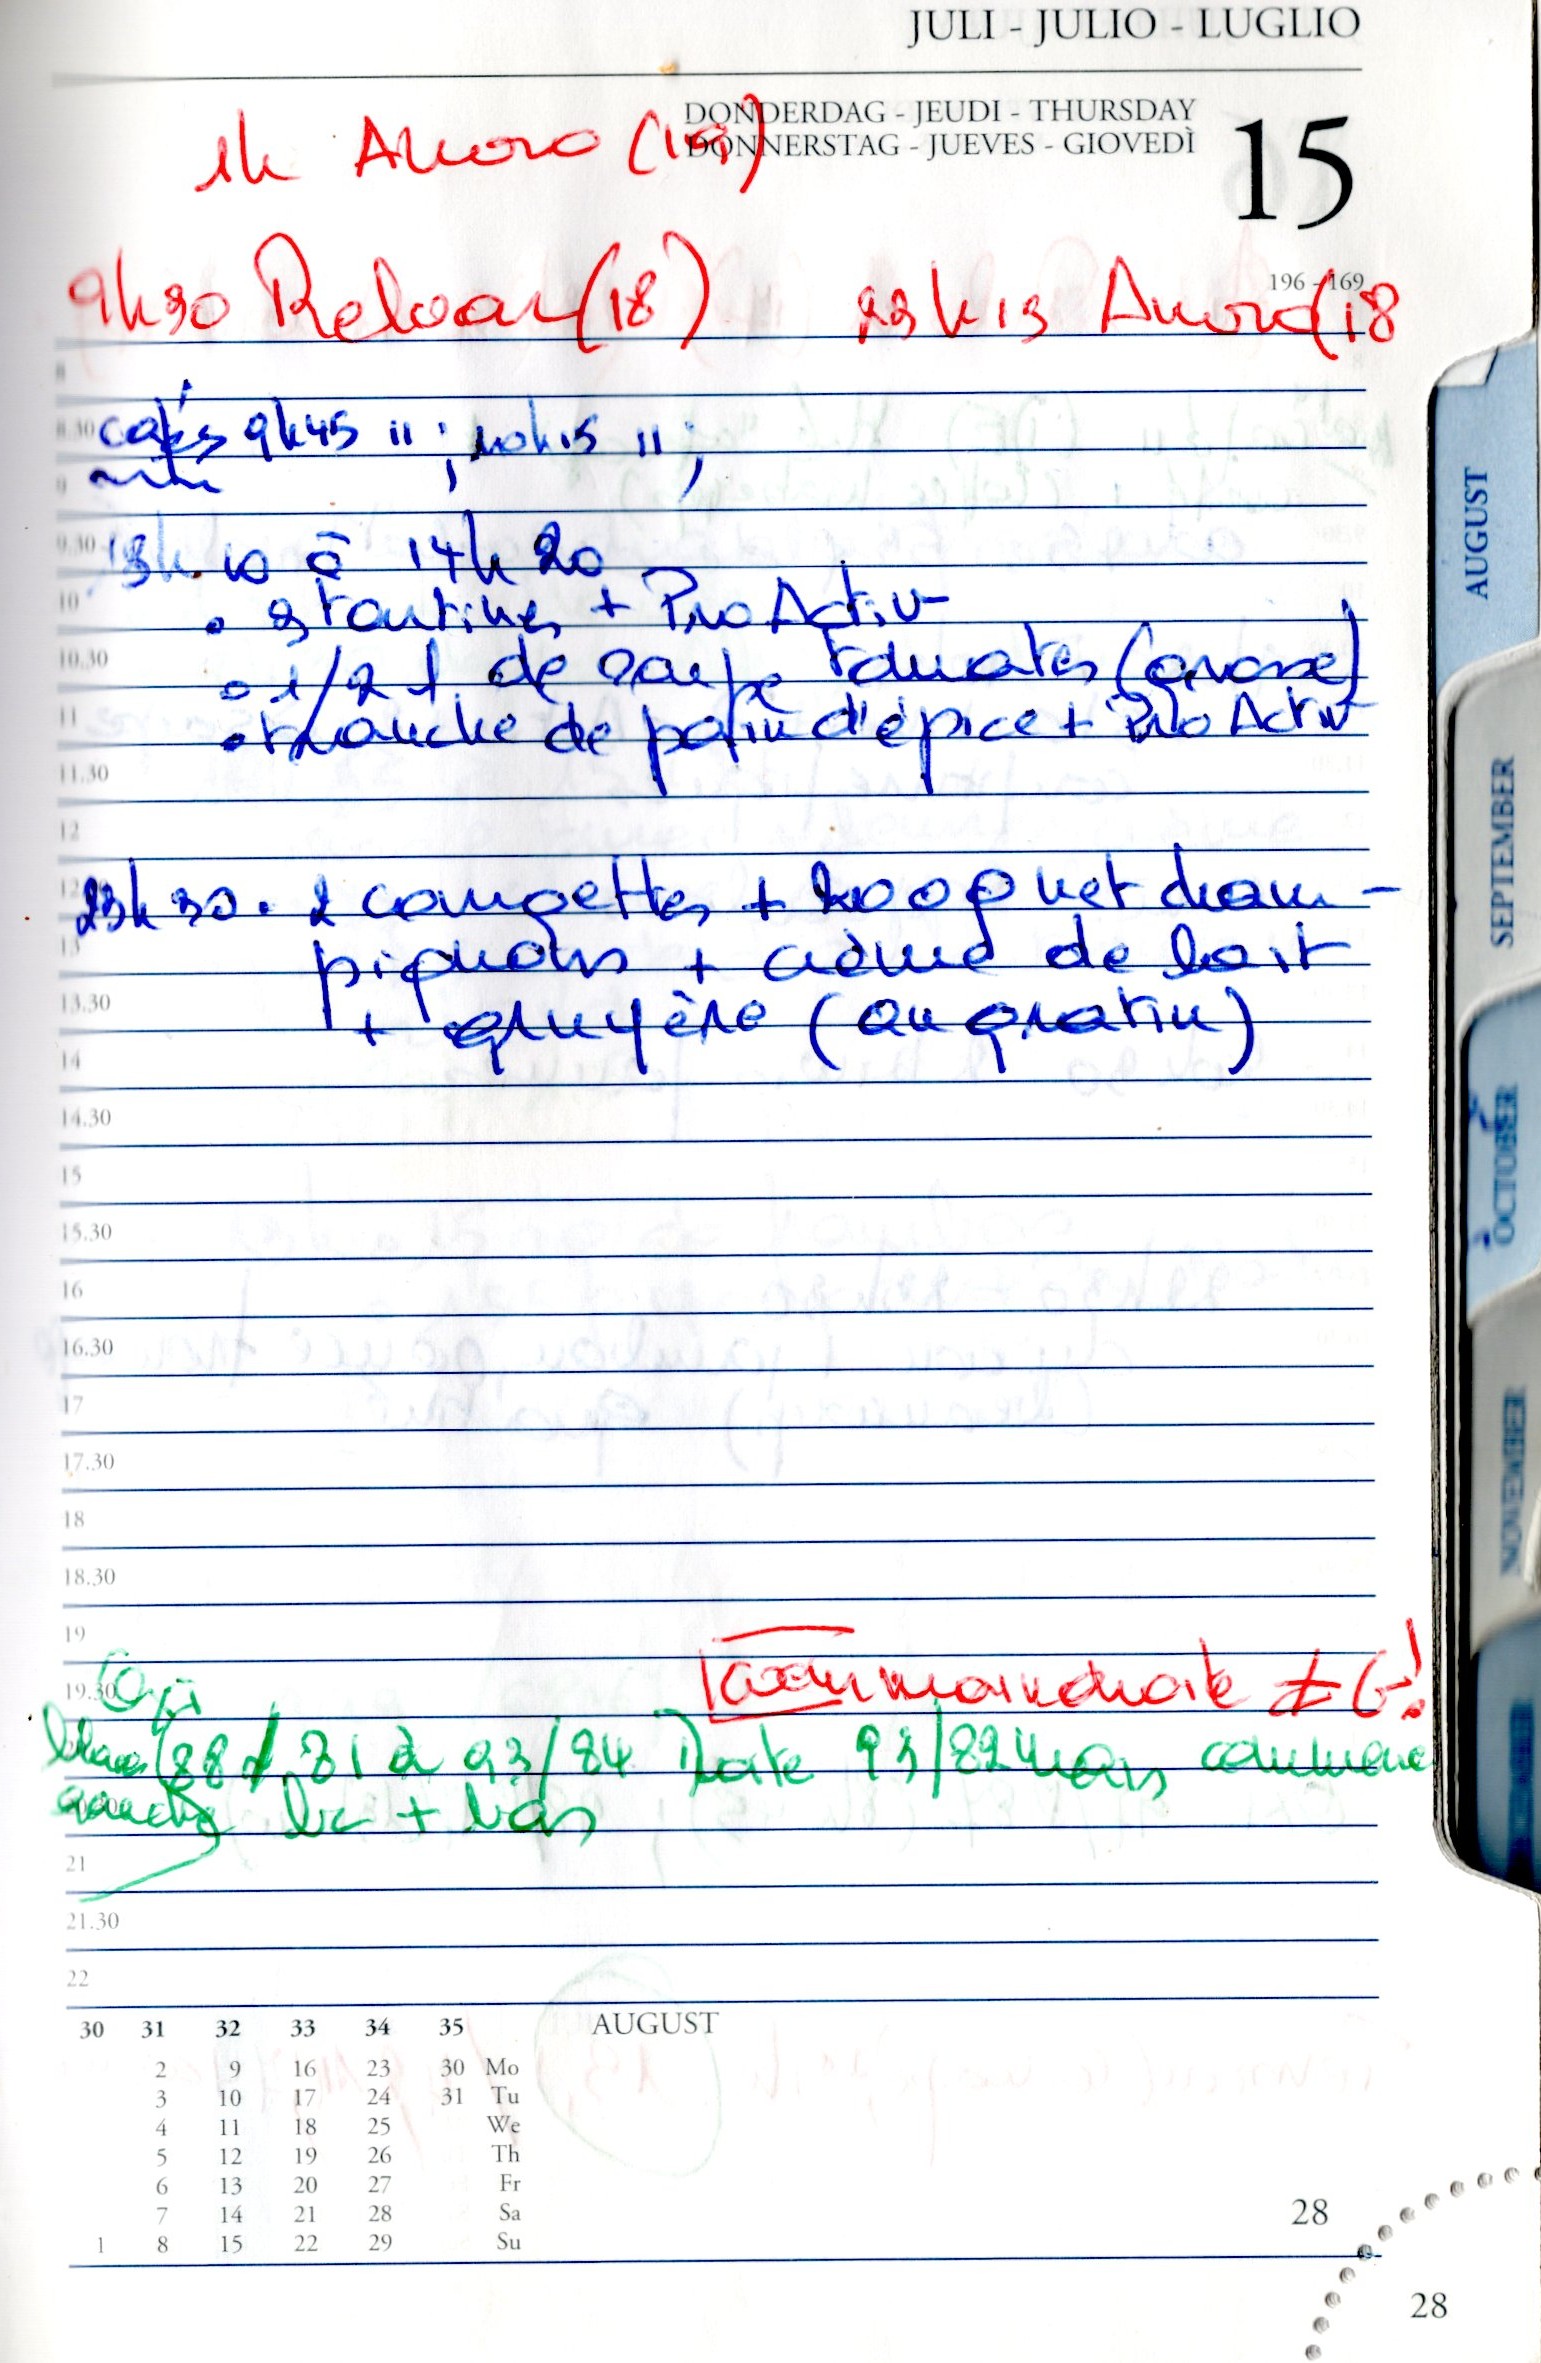 JULI - JULIO - LUGLIO
DONDERDAG - JEUDI - THURSDAY
DONNERSTAG - JUEVES - GIOVEDÌ
15
1h (19)
196 - 169
9h30 (18) 23h15 (18
8
8.30 cafés 9h45 11 ; 10h15 11 ;
9
9.30 13h10 à 14h20
10 • 2 tartines + ProActiv
10.30 • 1/2 l de soupe tomates
11 • tranche de pain d'épice + ProActiv
11.30
12
23h30. 2 courgettes + 200g net cham-
13 pignons + crème de lait
13.30 + gruyère (au gratin)
14
14.30
15
15.30
16
16.30
17
17.30
18
18.30
19
19.30 main droite ≠ G!
81 à 93/84 93/82
gauche + bas
21
21.30
22
30 31 32 33 34 35 AUGUST
2 9 16 23 30 Mo
3 10 17 24 31 Tu
4 11 18 25 We
5 12 19 26 Th
6 13 20 27 Fr
7 14 21 28 Sa
1 8 15 22 29 Su
28
28
AUGUST
SEPTEMBER
OCTOBER
NOVEMBER